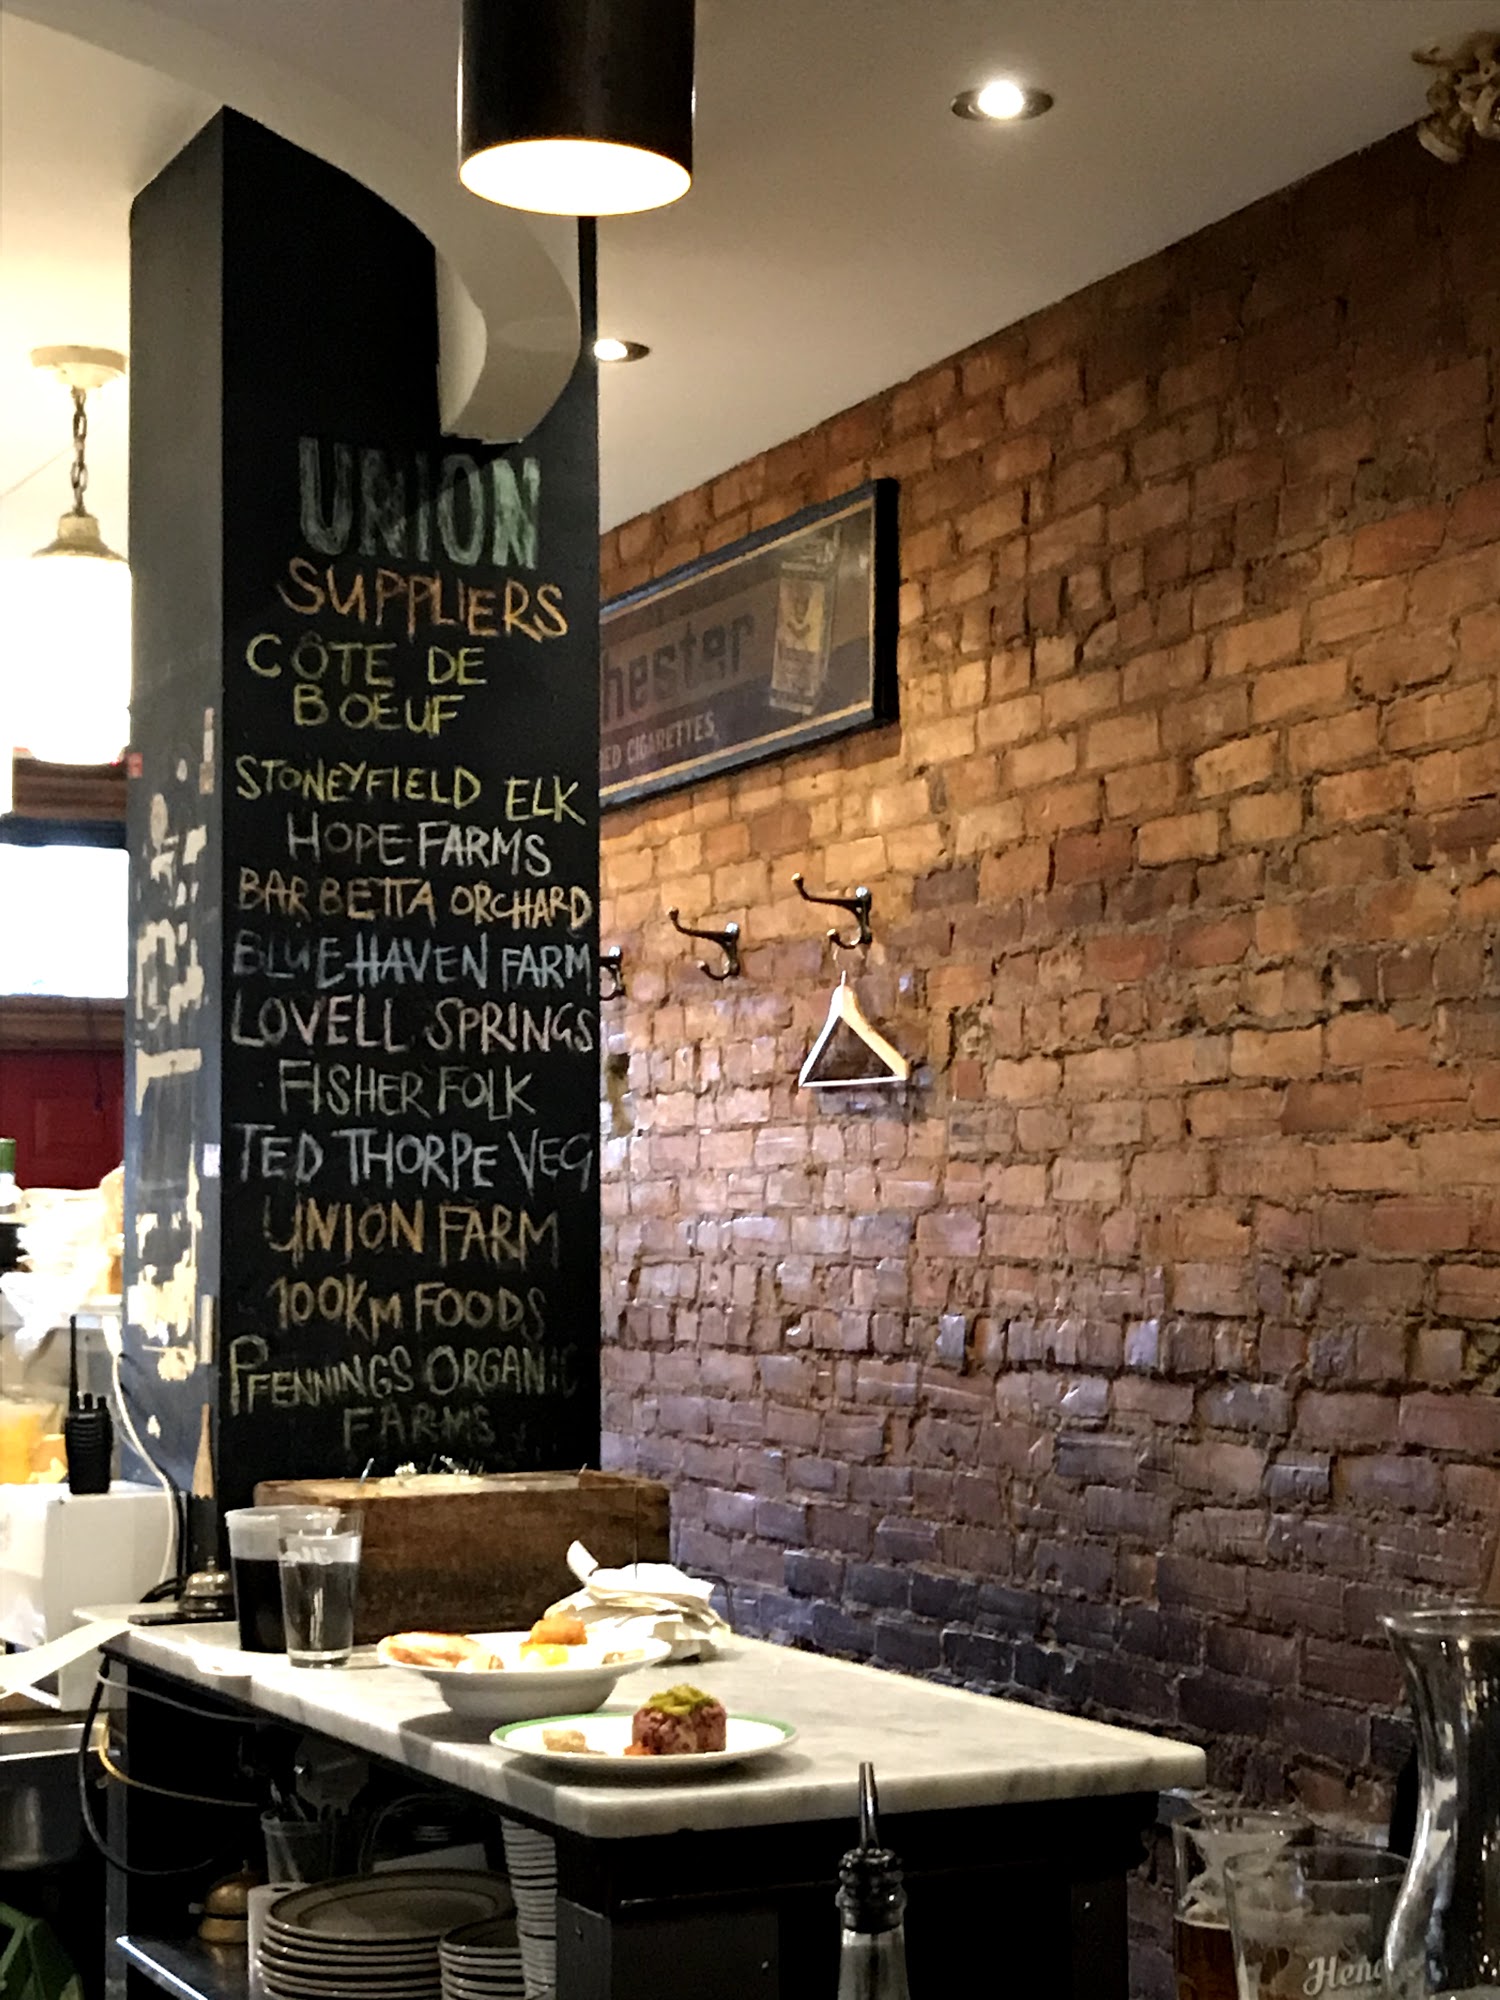 UNION
SUPPLIERS
CÔTE DE
BOEUF
STONEYFIELD ELK
HOPE FARMS
BARBETTA ORCHARD
BLUE HAVEN FARM
LOVELL SPRINGS
FISHER FOLK
TED THORPE VEG
UNION FARM
100KM FOODS
PFENNINGS ORGANIC
FARMS
hester
CIGARETTES